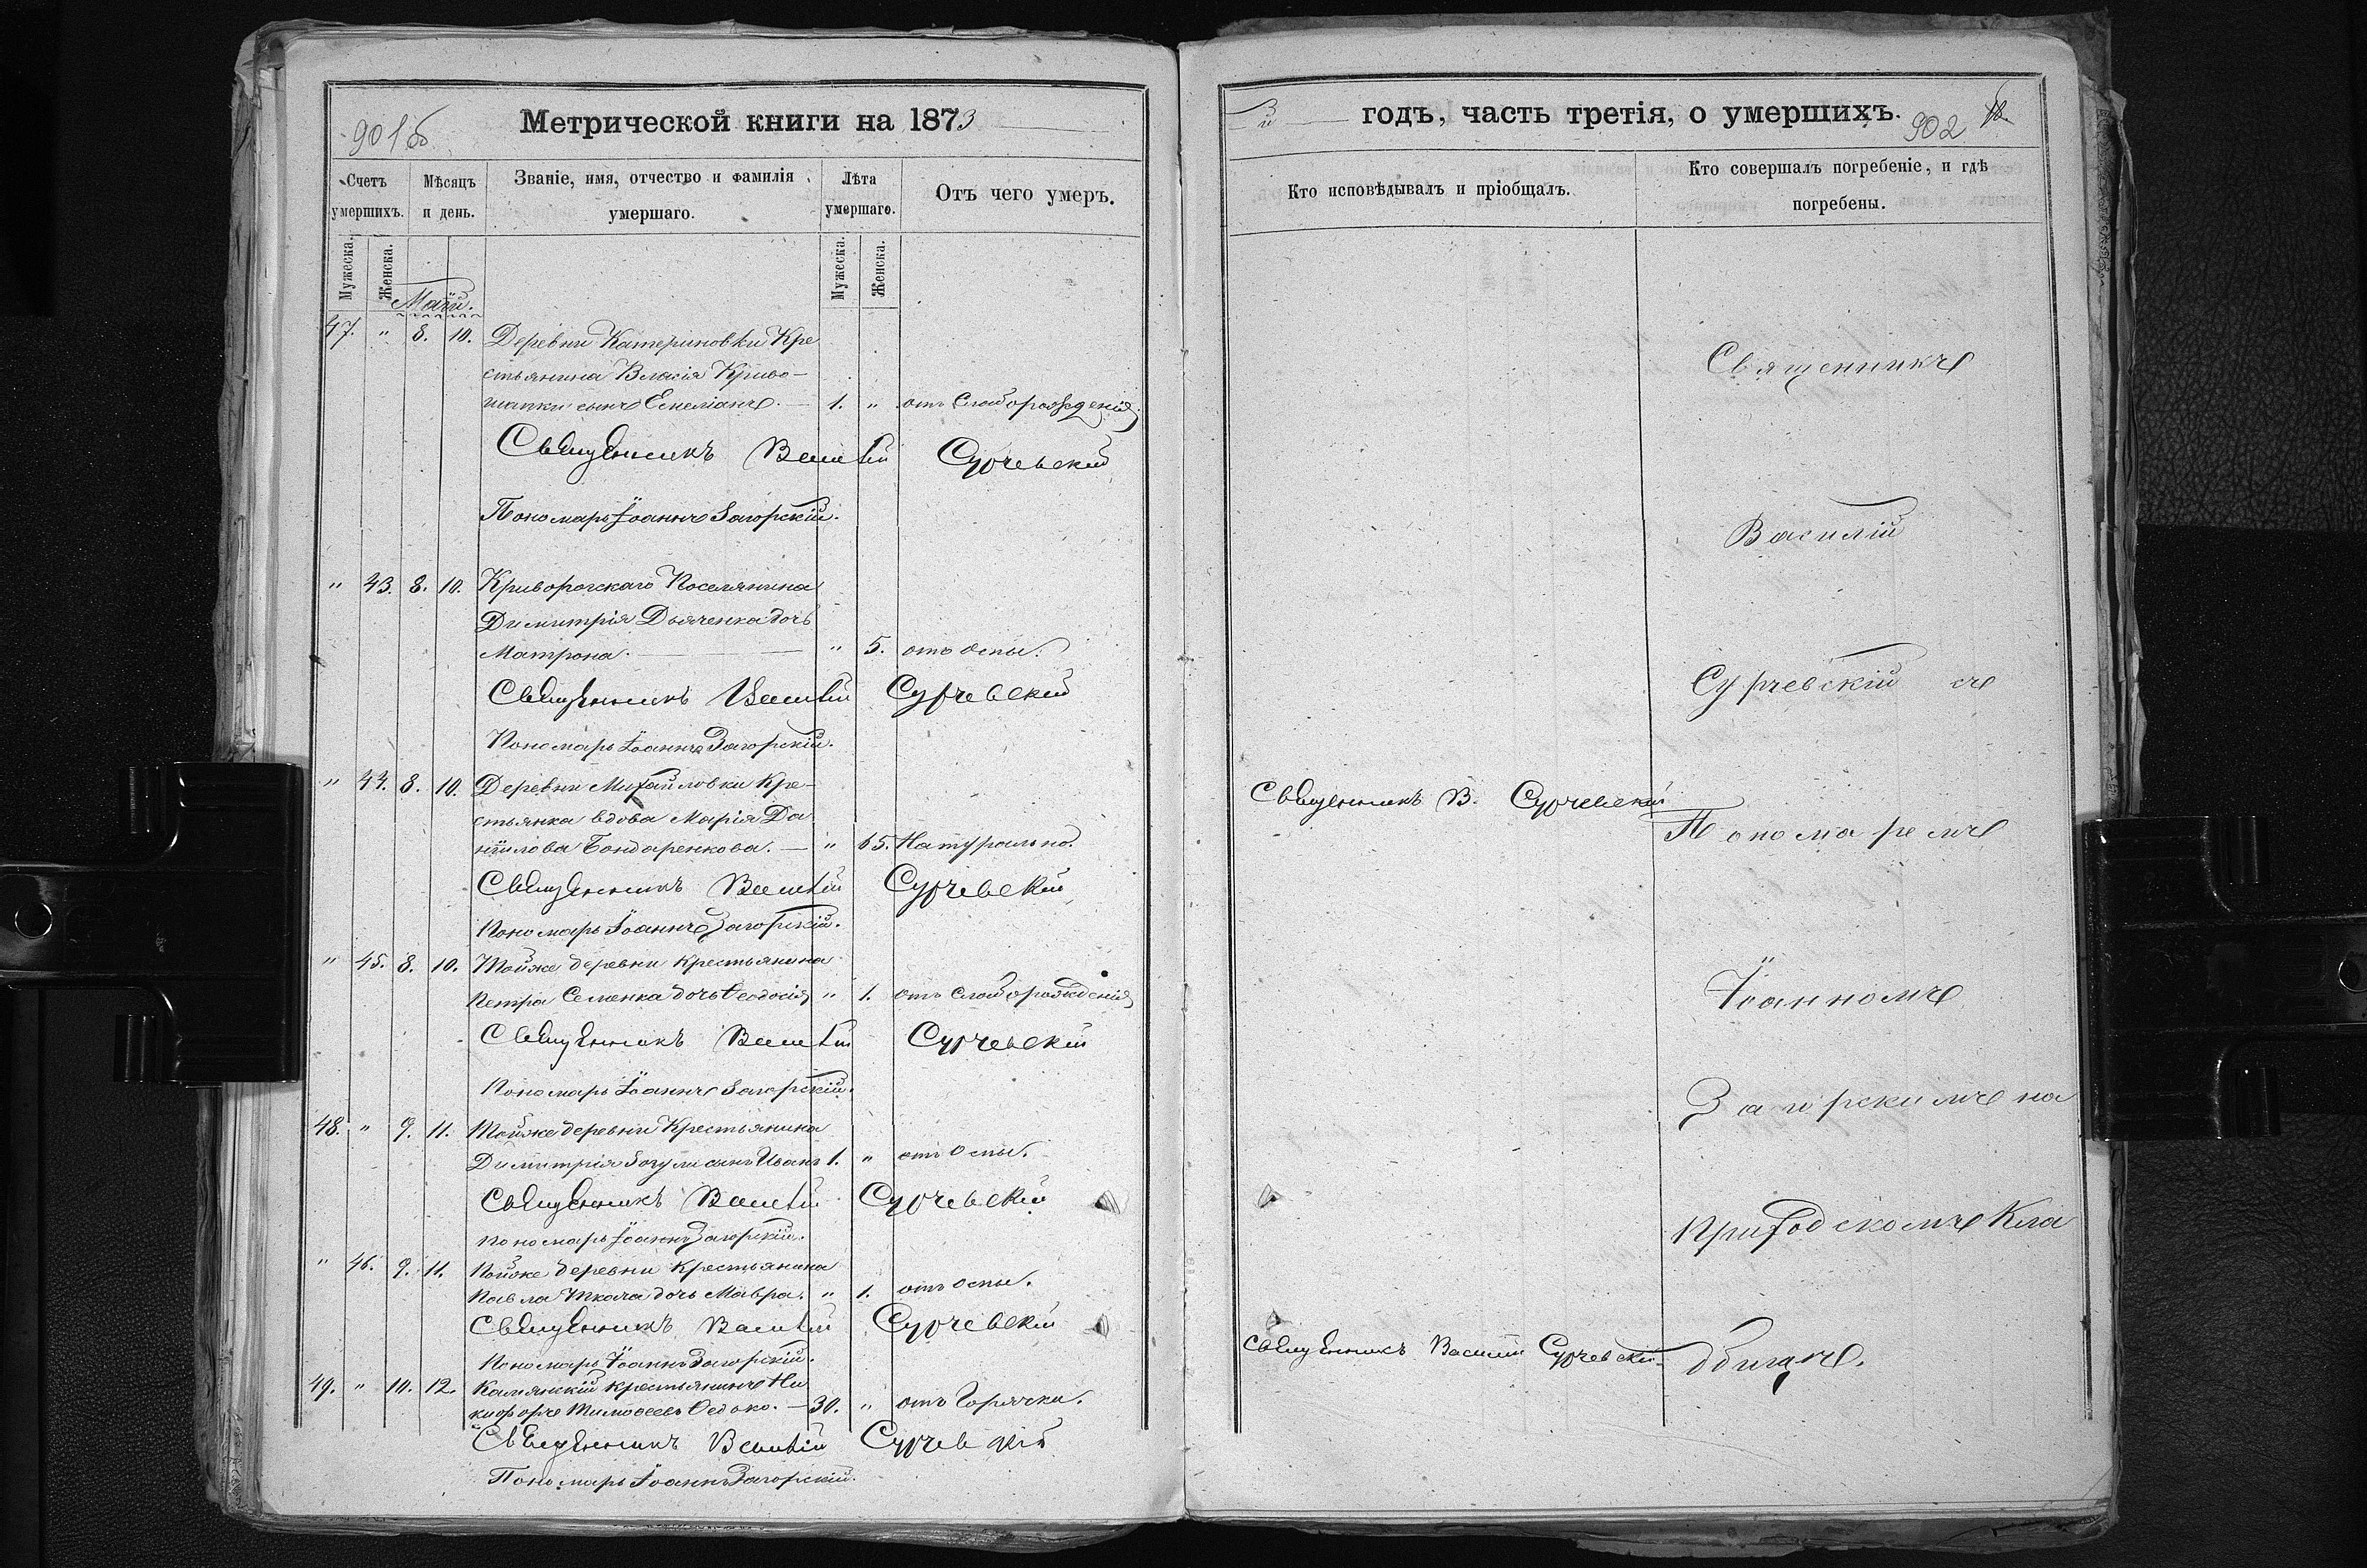 901б
Метрической книги на 1873
Счетъ умершихъ.
Мѣсяцъ и день.
Званіе, имя, отчество и фамилія умершаго.
Лѣта умершаго.
Отъ чего умеръ.
Мужеска.
Женска.
Мужеска.
Женска.
Май.
47. " 8. 10. Деревни Катериновки Кре
стьянина Власія Криво-
шапки сынъ Емеліанъ. — 1. " отъ Слаборожденія.
Священникъ Василій Сурчевскій
Пономарь Іоаннъ Загорскій.
" 43. 8. 10. Криворогскаго Поселянина
Димитрія Дьяченка дочь
Матрона. — " 5. отъ оспы.
Священникъ Василій Сурчевскій
Пономарь Іоаннъ Загорскій.
" 44. 8. 10. Деревни Михайловки Кре-
стьянка вдова Марія Да
нилова Бондаренкова. — " 65. Натурально.
Священникъ Василій Сурчевскій
Пономарь Іоаннъ Загорскій.
" 45. 8. 10. Тойже деревни крестьянина
Петра Семенка дочь Ѳеодосія " 1. отъ Слаборожденія
Священникъ Василій Сурчевскій
Пономарь Іоаннъ Загорскій.
48. " 9. 11. Тойже деревни Крестьянина
Димитрія Зозули сынъ Иванъ 1. " отъ Оспы.
Священникъ Василій Сурчевскій
Пономарь Іоаннъ Загорскій.
" 46. 9. 11. Тойже деревни крестьянина
Павла Ткача дочь Мавра. " 1. отъ оспы.
Священникъ Василій Сурчевскій
Пономарь Іоаннъ Загорскій.
49. " 10. 12. Камянскій крестьянинъ Ни
кифоръ Тимоѳеевъ Ѳедько. — 30. " отъ Горячки.
Священникъ Василій Сурчевскій
Пономарь Іоаннъ Загорскій.
3й годъ, часть третія, о умершихъ.
902
Кто исповѣдывалъ и пріобщалъ.
Кто совершалъ погребеніе, и гдѣ погребены.
Священникъ
Василій
Сурчевскій съ
Священникъ В. Сурчевскій
Пономаремъ
Іоанномъ
Загорскимъ на
Приходскомъ Кла
Священникъ Василій Сурчевскій
дбищѣ.